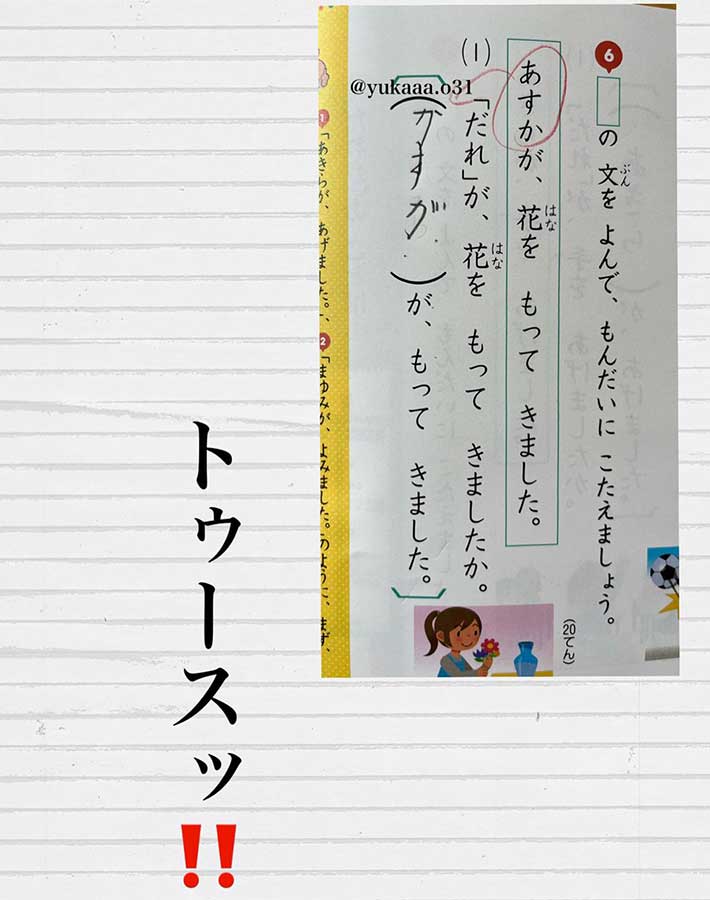 6 の 文を よんで、もんだいに こたえましょう。
ぶん
あすかが、花を もって きました。
はな
(20てん)
(1) 「だれ」が、花を もって きましたか。
はな
(かすが)が、もって きました。
@yukaaa.o31
1 「あきらが、あげました。」、
2 「まゆみが、よみました。」のように、まず、
トゥースッ‼